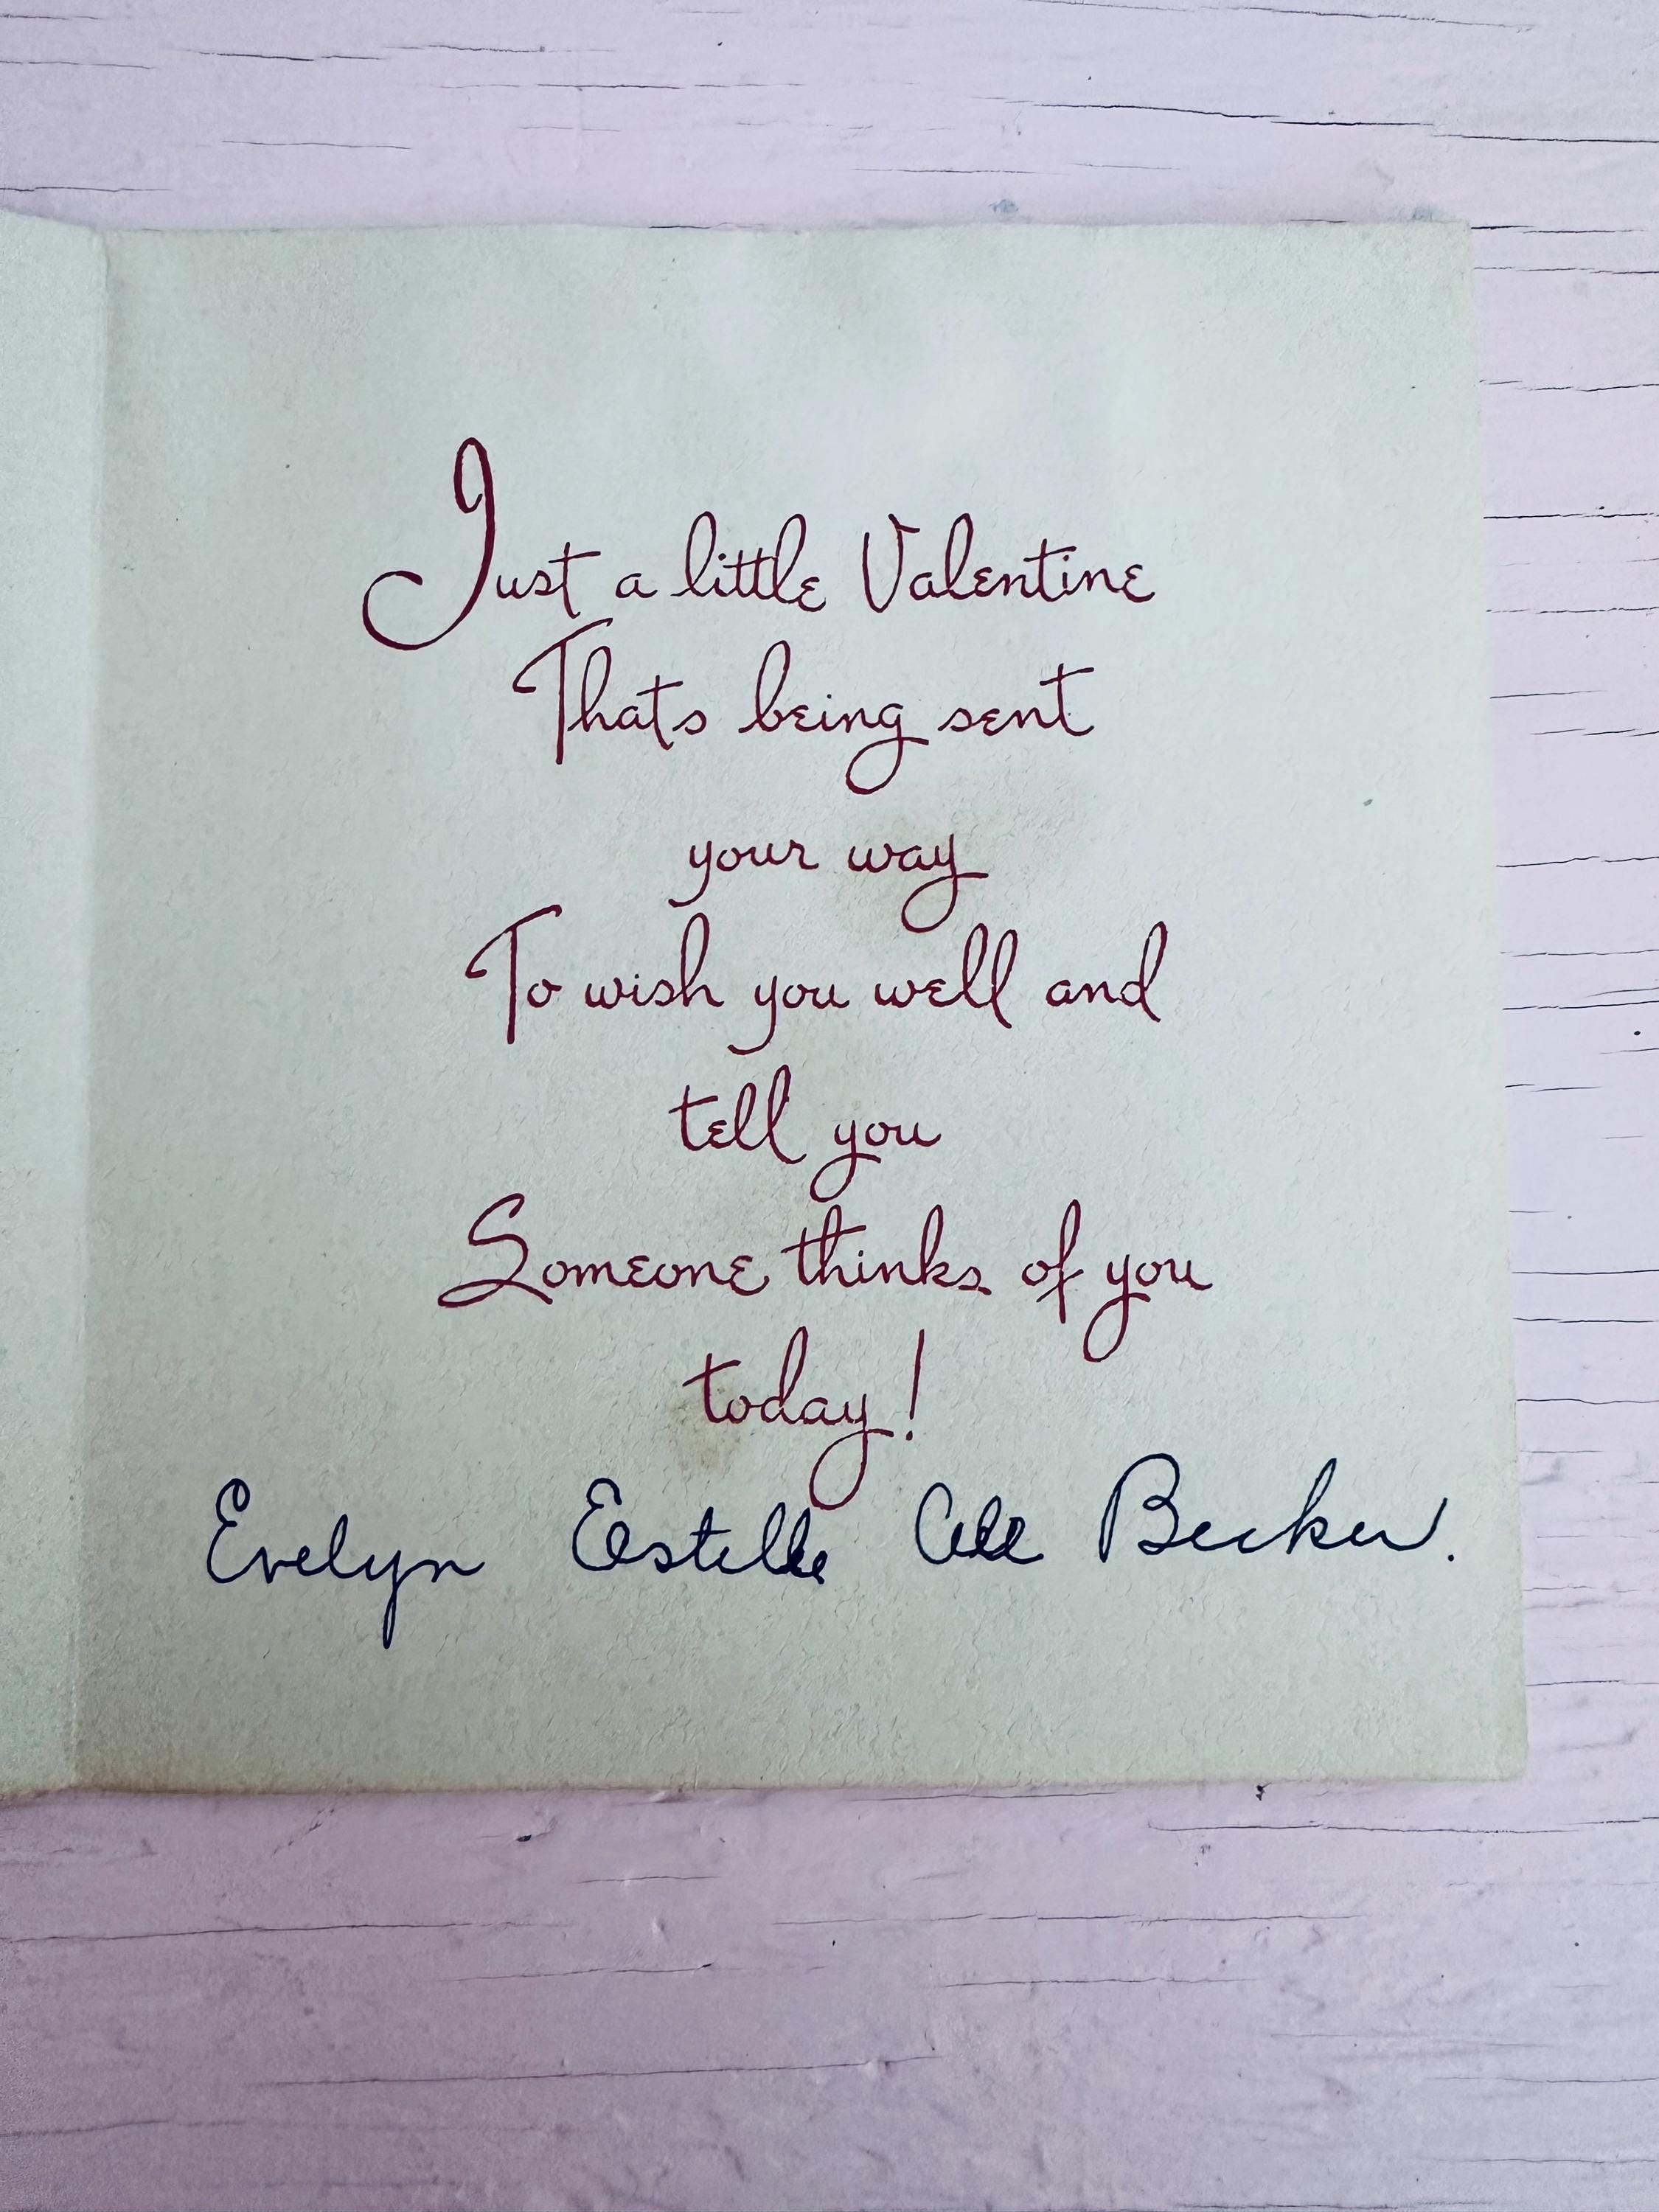 Just a little Valentine
Thats being sent
your way
To wish you well and
tell you
Someone thinks of you
today!
Evelyn Estelle Becker.